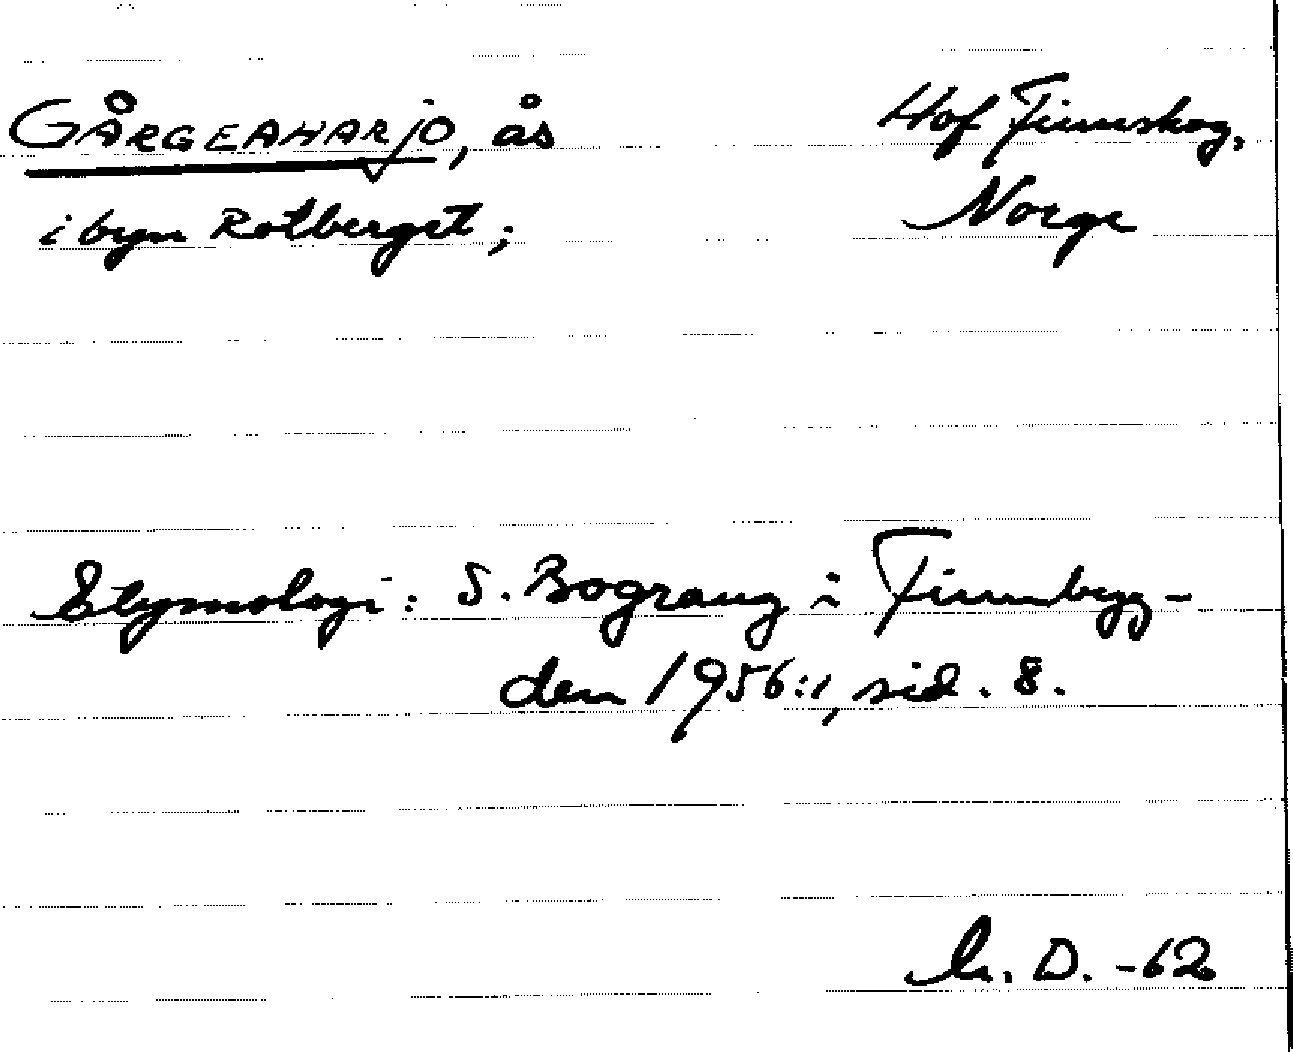 GÅRGEAHARJO, ås
Hof Finnskog,
Norge
i byn Rotberget;
Etymologi: S. Bograng i Finnbygd-
den 1956:1, sid. 8.
D. -62